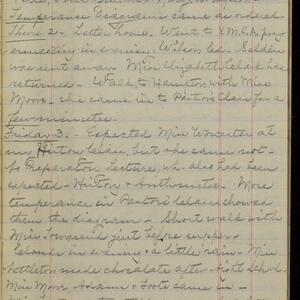 Temperance Diagrams came as ordered
Thurs 2 - Letter home. Went to Y.M.C.A. for
evening. Wilson led. Selden
was sent away. Miss Elizabeth Clark has
returned - Walk to Hampton with Miss
Moore - she came in to Pastor's Class for a
few minutes.
Friday 3. - Expected Miss Worcester at
my History class, but she came not -
to Preparation Lecture, wh. also had been
expected - History & Arithmetic - More
temperance in Pastor's class showed
them the diagram - Short walk with
Miss Townsend just before supper -
Clouds in evening & a little rain - Miss
Kittleton made chocolate after Night School.
Miss Moore, Adams & Foote came in -